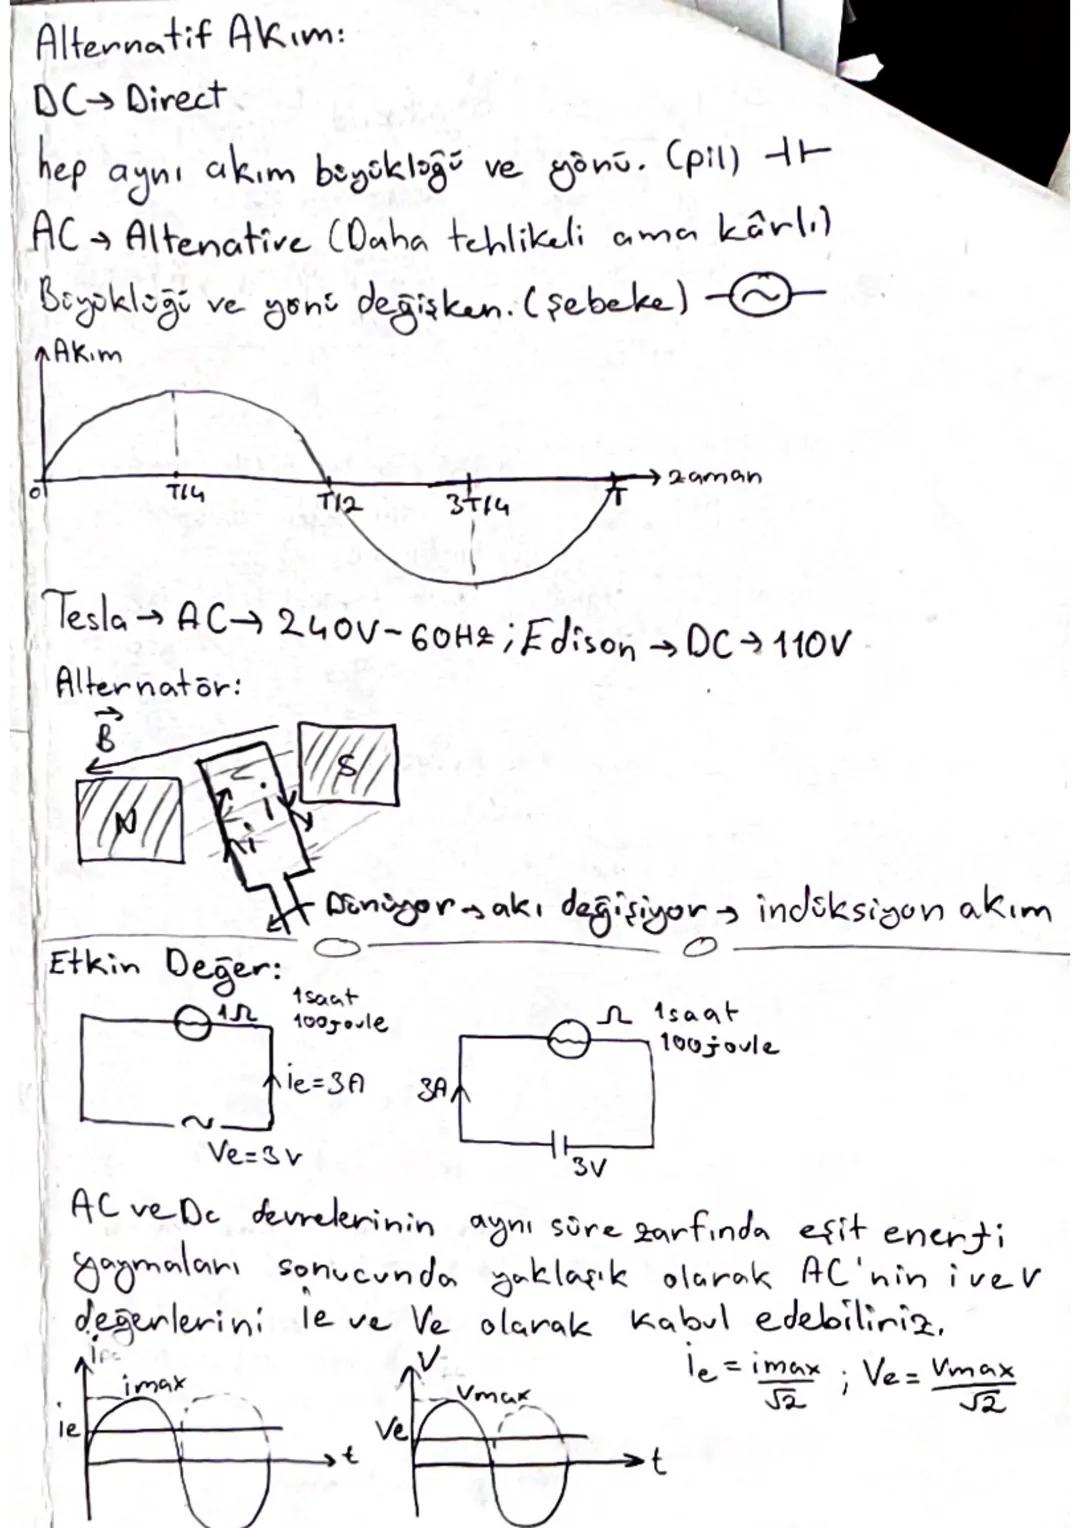 Alternatif Akım:
DC→ Direct
hep aynı akım büyüklüğü ve yönü. (pil)
AC→ Altenative (Daha tehlikeli ama kârlı)
Büyüklüğü ve yönü değişken. (şebeke) ~
Akım
0 T/4 T/2 3T/4 T zaman
Tesla → AC→ 240V-60Hz ; Edison → DC → 110V
Alternatör:
B
S
N
i
i
Dönüyor → akı değişiyor → indüksiyon akım
Etkin Değer:
1Ω 1saat
100joule
Ω 1saat
100joule
ie=3A
3A
~
Ve=3V
3V
AC ve Dc devrelerinin aynı süre zarfında eşit enerji
yaymaları sonucunda yaklaşık olarak AC'nin i ve V
değerlerini ie ve Ve olarak kabul edebiliriz.
ie = imax/√2 ; Ve = Vmax/√2
imax
ie
t
V
Vmax
Ve
t